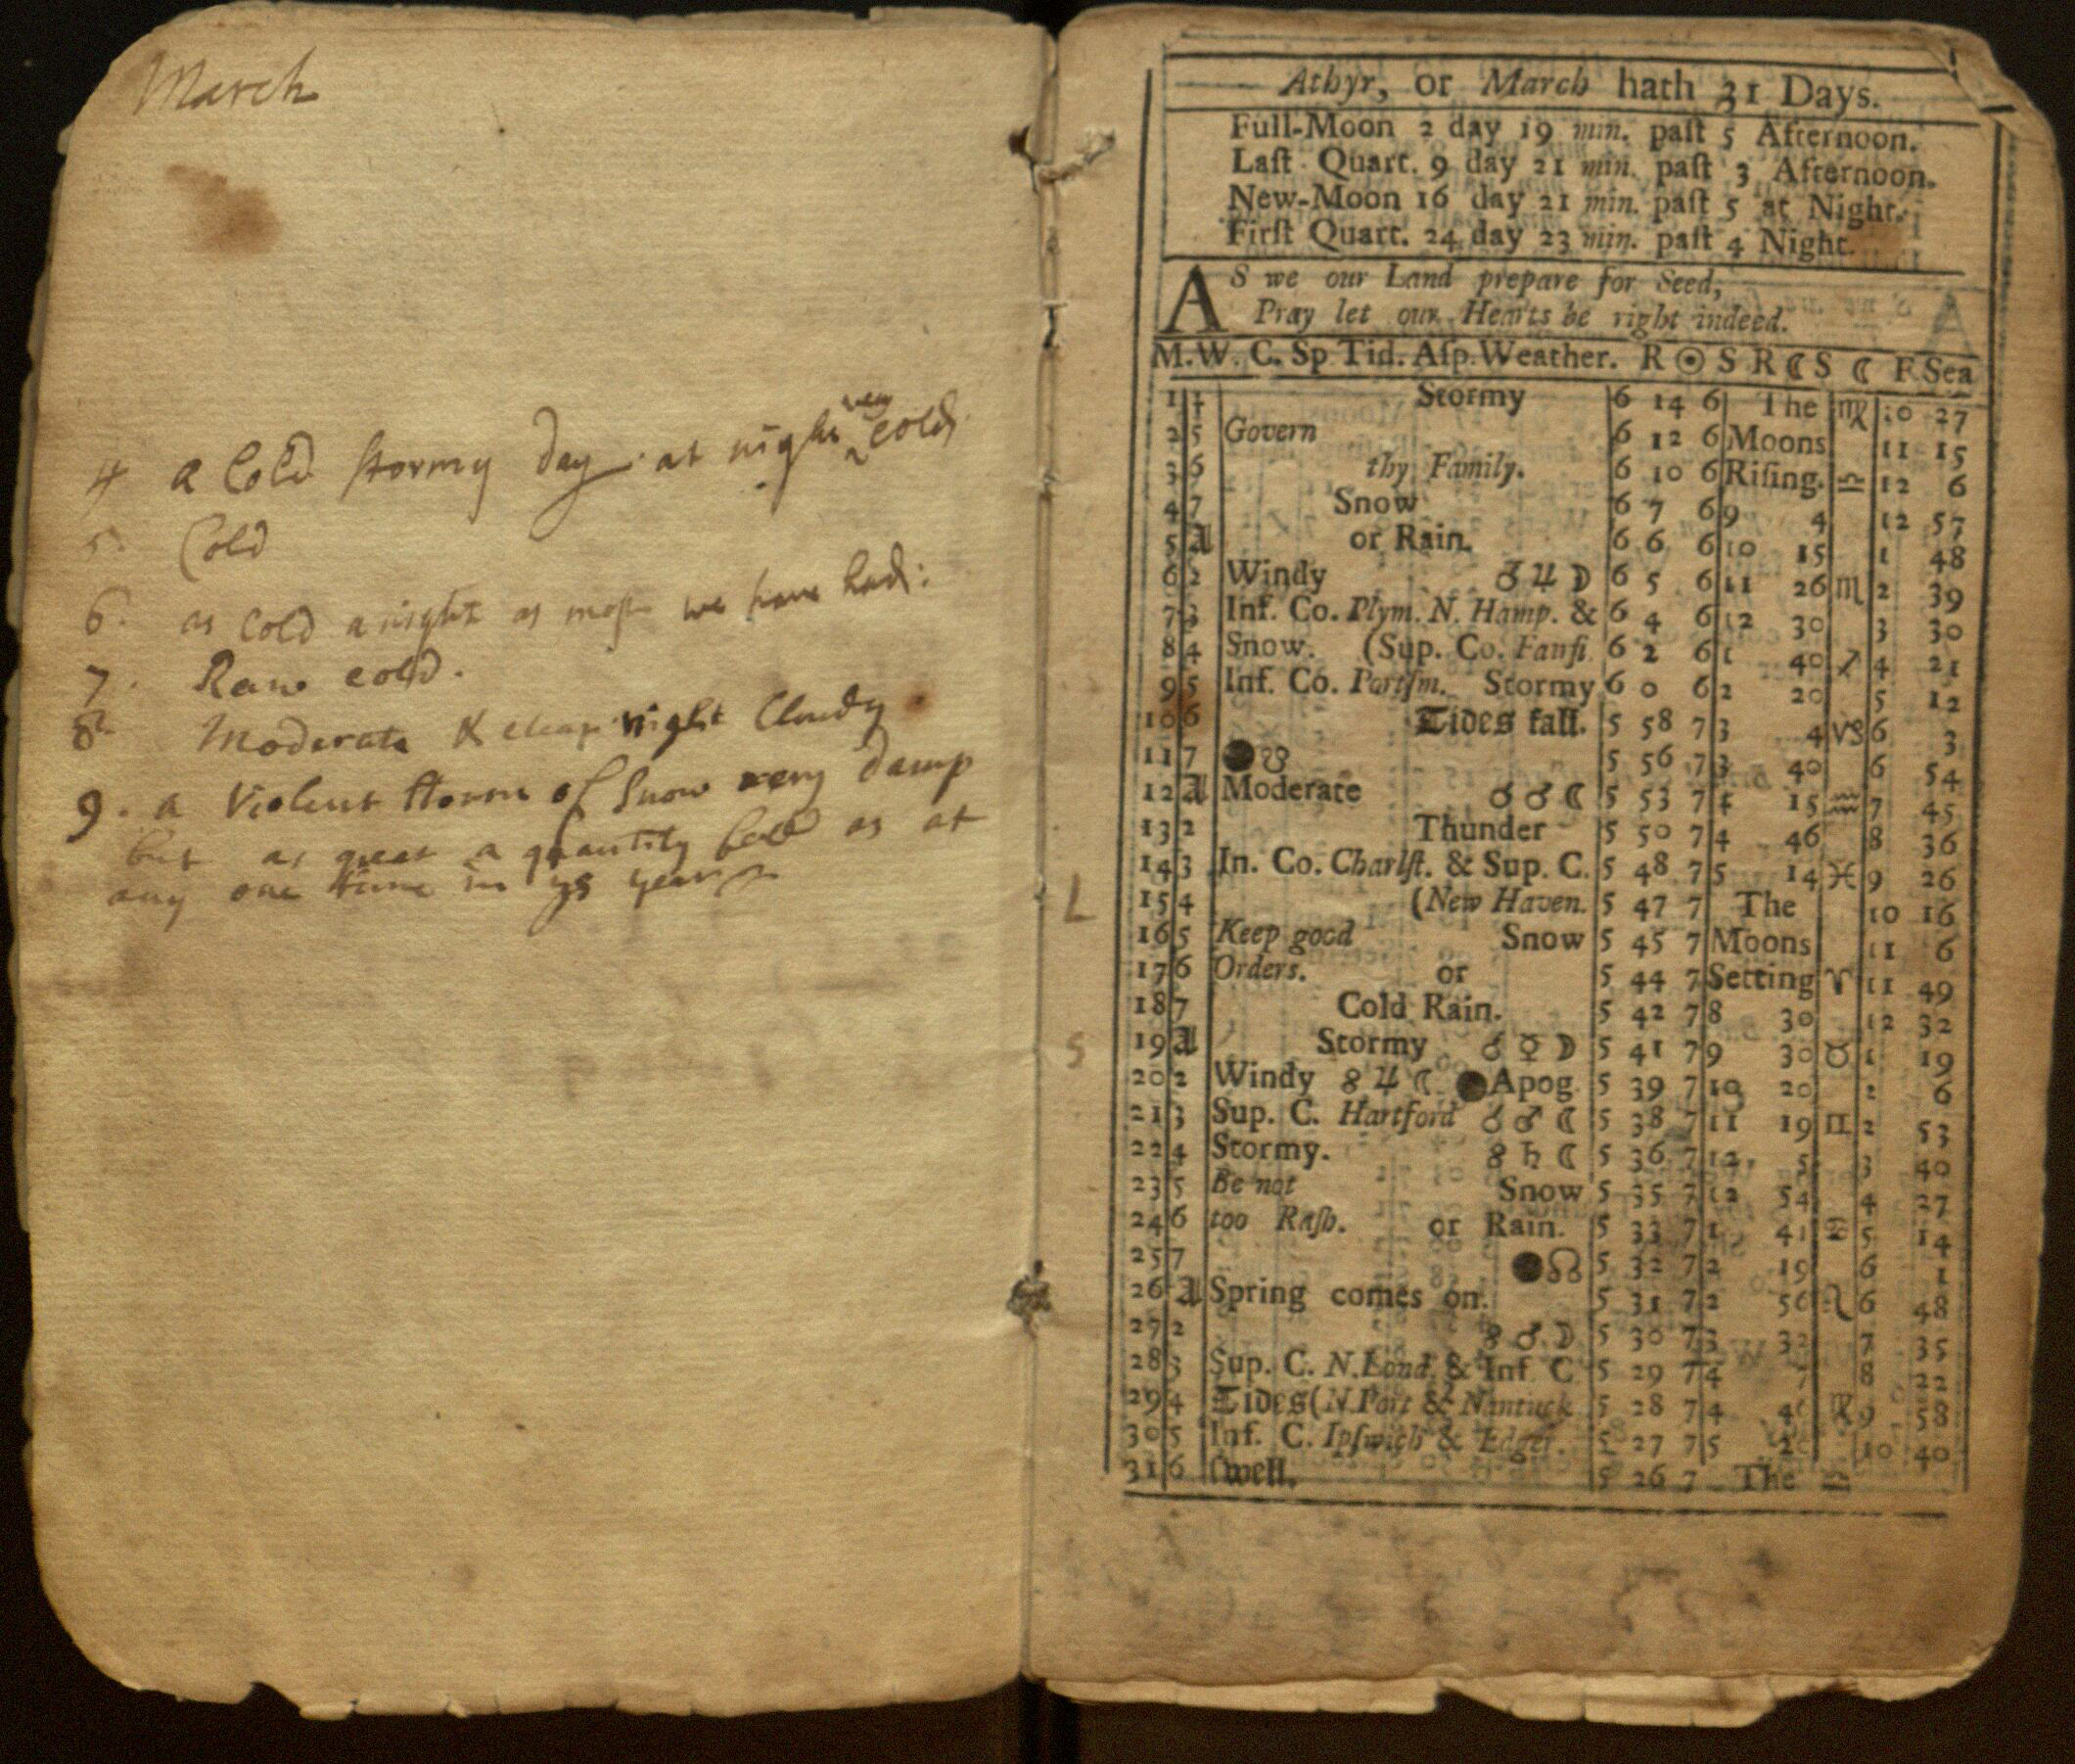 March
4 a Cold stormy day at night very cold
5. Cold
6. as Cold a night as most we have had:
7. Raw cold.
8. Moderate & clear night Cloudy
9. a Violent storm of Snow very damp
but as great a quantity fell as at
any one time in ys year
Athyr, or March hath 31 Days.
Full-Moon 2 day 19 min. paſt 5 Afternoon.
Laſt Quart. 9 day 21 min. paſt 3 Afternoon.
New-Moon 16 day 21 min. paſt 5 at Night.
Firſt Quart. 24 day 23 min. paſt 4 Night.
AS we our Land prepare for Seed,
Pray let our Hearts be right indeed.
M. W. C. Sp Tid. Aſp. Weather. R ☉ S R ☾ S ☾ F. Sea
1 4 Stormy 6 14 6 The ♍ 10 27
2 5 Govern 6 12 6 Moons 11 15
3 6 thy Family. 6 10 6 Riſing. ♎ 12 6
4 7 Snow 6 7 6 9 4 12 57
5 A or Rain. 6 6 6 10 15 1 48
6 2 Windy ☌ ♃ ☽ 6 5 6 11 26 ♏ 2 39
7 3 Inf. Co. Plym. N. Hamp. & 6 4 6 12 30 3 30
8 4 Snow. (Sup. Co. Fanſi 6 2 6 1 40 ♐ 4 21
9 5 Inf. Co. Portſm. Stormy 6 0 6 2 20 5 12
10 6 Tides fall. 5 58 7 3 4 ♑ 6 3
11 7 ● ☋ 5 56 7 3 40 6 54
12 A Moderate ☌ ♂ ☾ 5 53 7 4 15 ♒ 7 45
13 2 Thunder 5 50 7 4 46 8 36
14 3 In. Co. Charlſt. & Sup. C. 5 48 7 5 14 ♓ 9 26
L 15 4 (New Haven. 5 47 7 The 10 16
16 5 Keep good Snow 5 45 7 Moons 11 6
17 6 Orders. or 5 44 7 Setting ♈ 11 49
18 7 Cold Rain. 5 42 7 8 30 12 32
S 19 A Stormy ☌ ☿ ☽ 5 41 7 9 30 ♉ 1 19
20 2 Windy ☍ ♃ ☾ ● Apog. 5 39 7 10 20 2 6
21 3 Sup. C. Hartford ☌ ♂ ☾ 5 38 7 11 19 ♊ 2 53
22 4 Stormy. ☍ ♄ ☾ 5 36 7 12 5 3 40
23 5 Be not Snow 5 35 7 12 54 4 27
24 6 too Raſh. or Rain. 5 33 7 1 41 ♋ 5 14
25 7 ● ☊ 5 32 7 2 19 6 1
26 A Spring comes on. 5 31 7 2 56 ♌ 6 48
27 2 ☍ ♂ ☽ 5 30 7 3 7 35
28 3 Sup. C. N. Lond. & Inf. C 5 29 7 4 7 8 22
29 4 Tides (N. Port & Nantuck 5 28 7 4 ♍ 9 58
30 5 Inf. C. Ipſwich & Edger. 5 27 7 5 10 40
31 6 ſwell. 5 26 7 The ♎